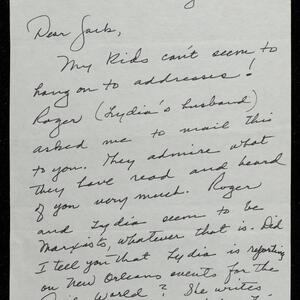 Dear Jack,
My kids can't seem to
hang on to addresses!
Roger (Lydia's husband)
asked me to mail this
to you. They admire what
they have read and heard
of you very much. Roger
and Lydia seem to be
Marxists, whatever that is. Did
I tell you that Lydia is reporting
on New Orleans events for the
World? She writes